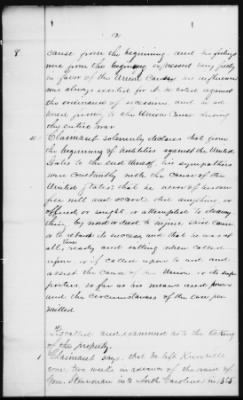 8 cause from the beginning and his feelings
were from the beginning expressed very freely
in favor of the Union Cause his influence
was always exerted for it he voted against
the ordinance of secession and he ad
hered firmly to the Union Cause during
the entire war
Claimant solemnly declares that from
the beginning of hostilities against the United
States to the end thereof his sympathies
were constantly with the cause of the
United States that he never of his own
free will and accord did anything or
offered or sought or attempted to do any
thing by word or deed to injure said cause
or to retard its success and that he was at
all times ready and willing when called
upon or if called upon to aid and
assist the cause of the Union or its sup
porters so far as his means and power
and the circumstances of the case per
mitted
Recalled and examined as to the taking
of the property.
1 Claimant says that he left
some two weeks in advance of the of
Gen. Stoneman in North Carolina in 1865